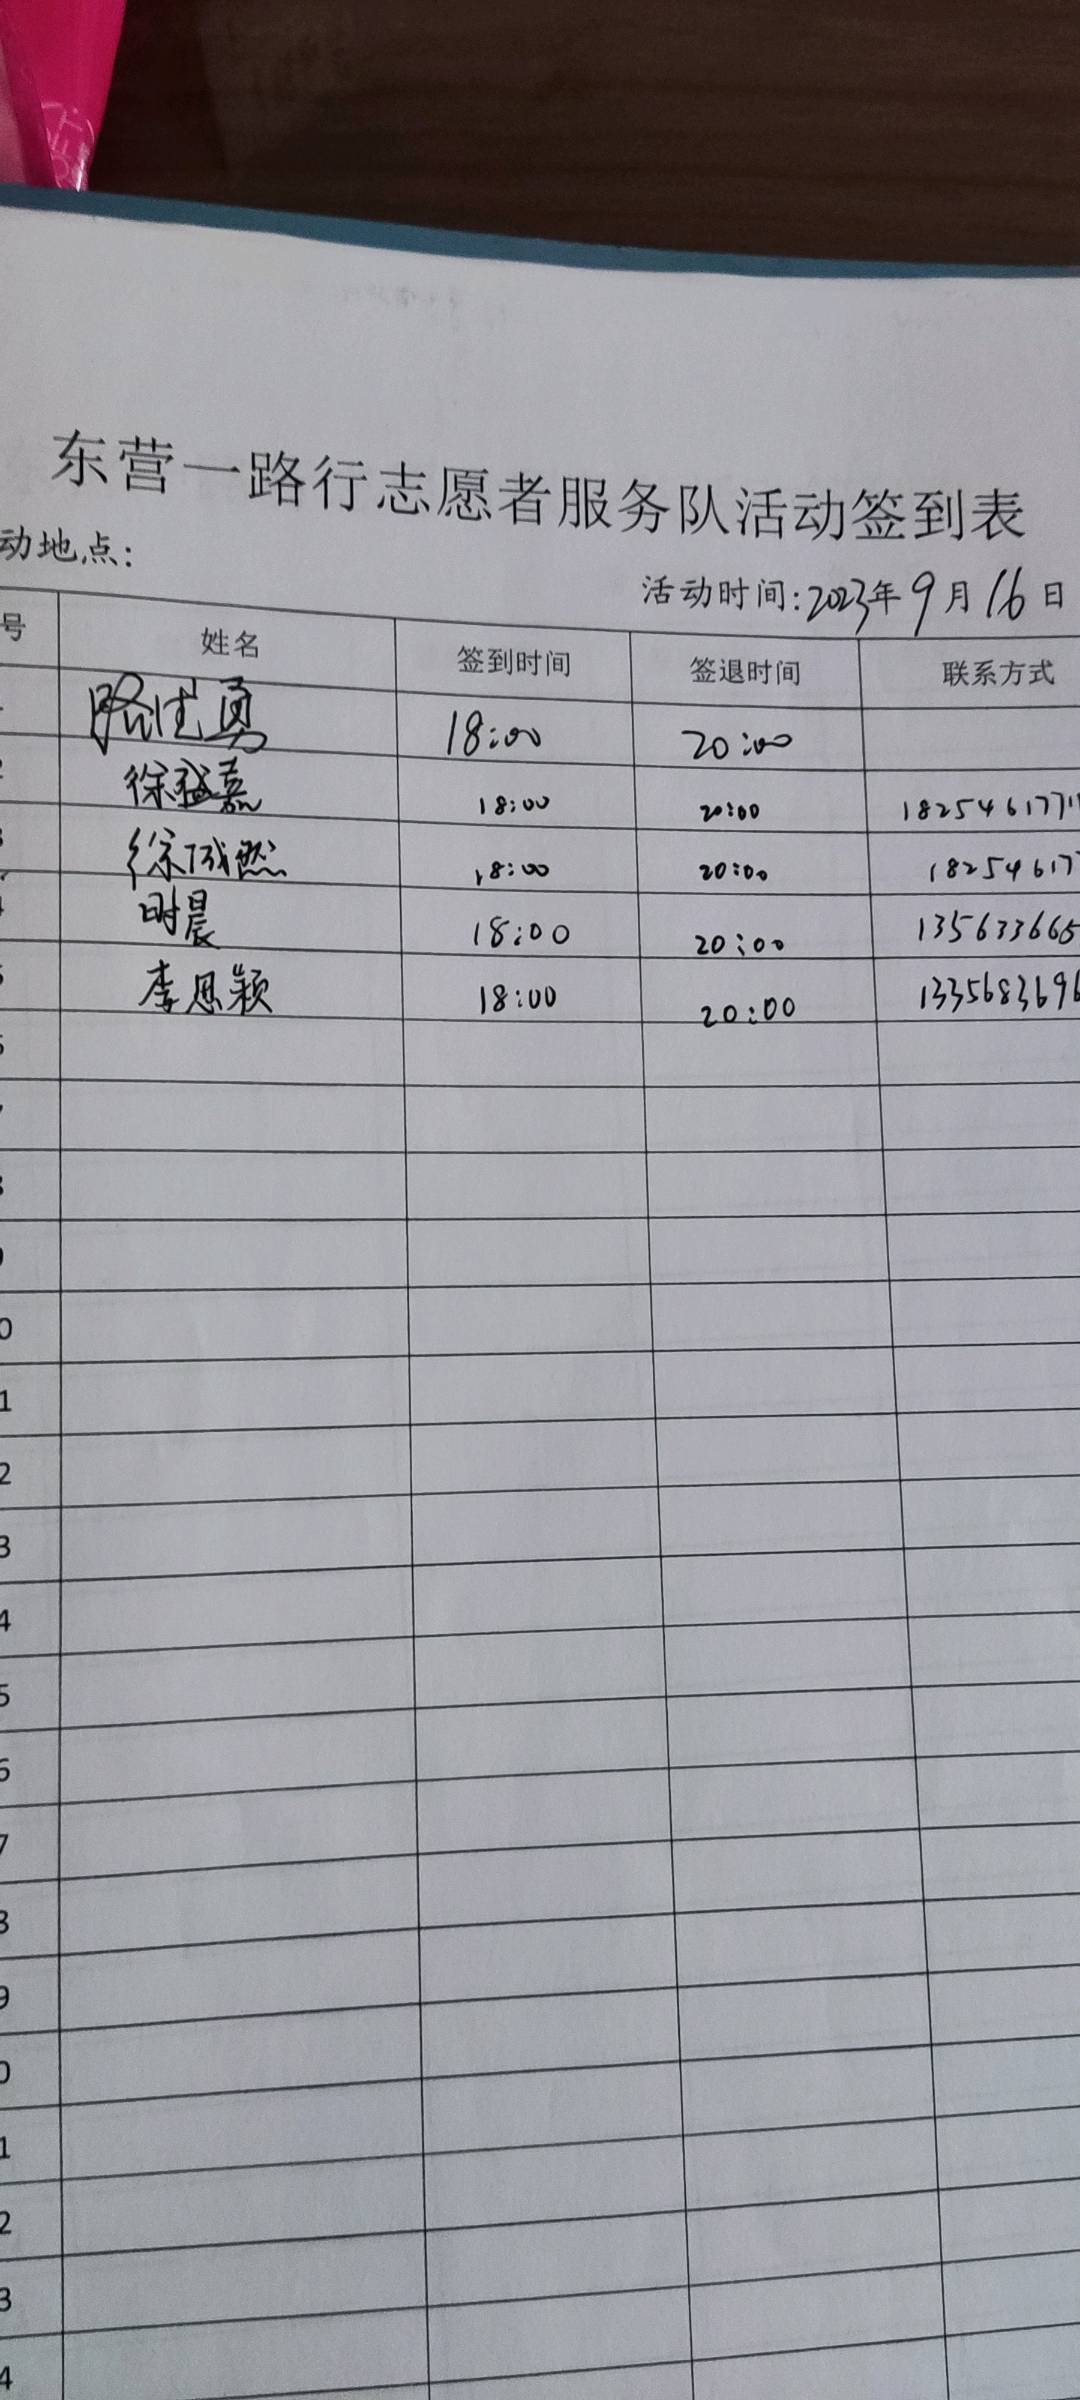 东营一路行志愿者服务队活动签到表
动地点:
活动时间:2023年9月16日
号 姓名 签到时间 签退时间 联系方式
路 勇 18:00 20:00
2 徐盛嘉 18:00 20:00 1825461771
3 徐成燃 18:00 20:00 18254617
4 时晨 18:00 20:00 135633665
5 李恩颖 18:00 20:00 1335683696
0
1
2
3
4
5
6
7
8
9
0
1
2
3
4